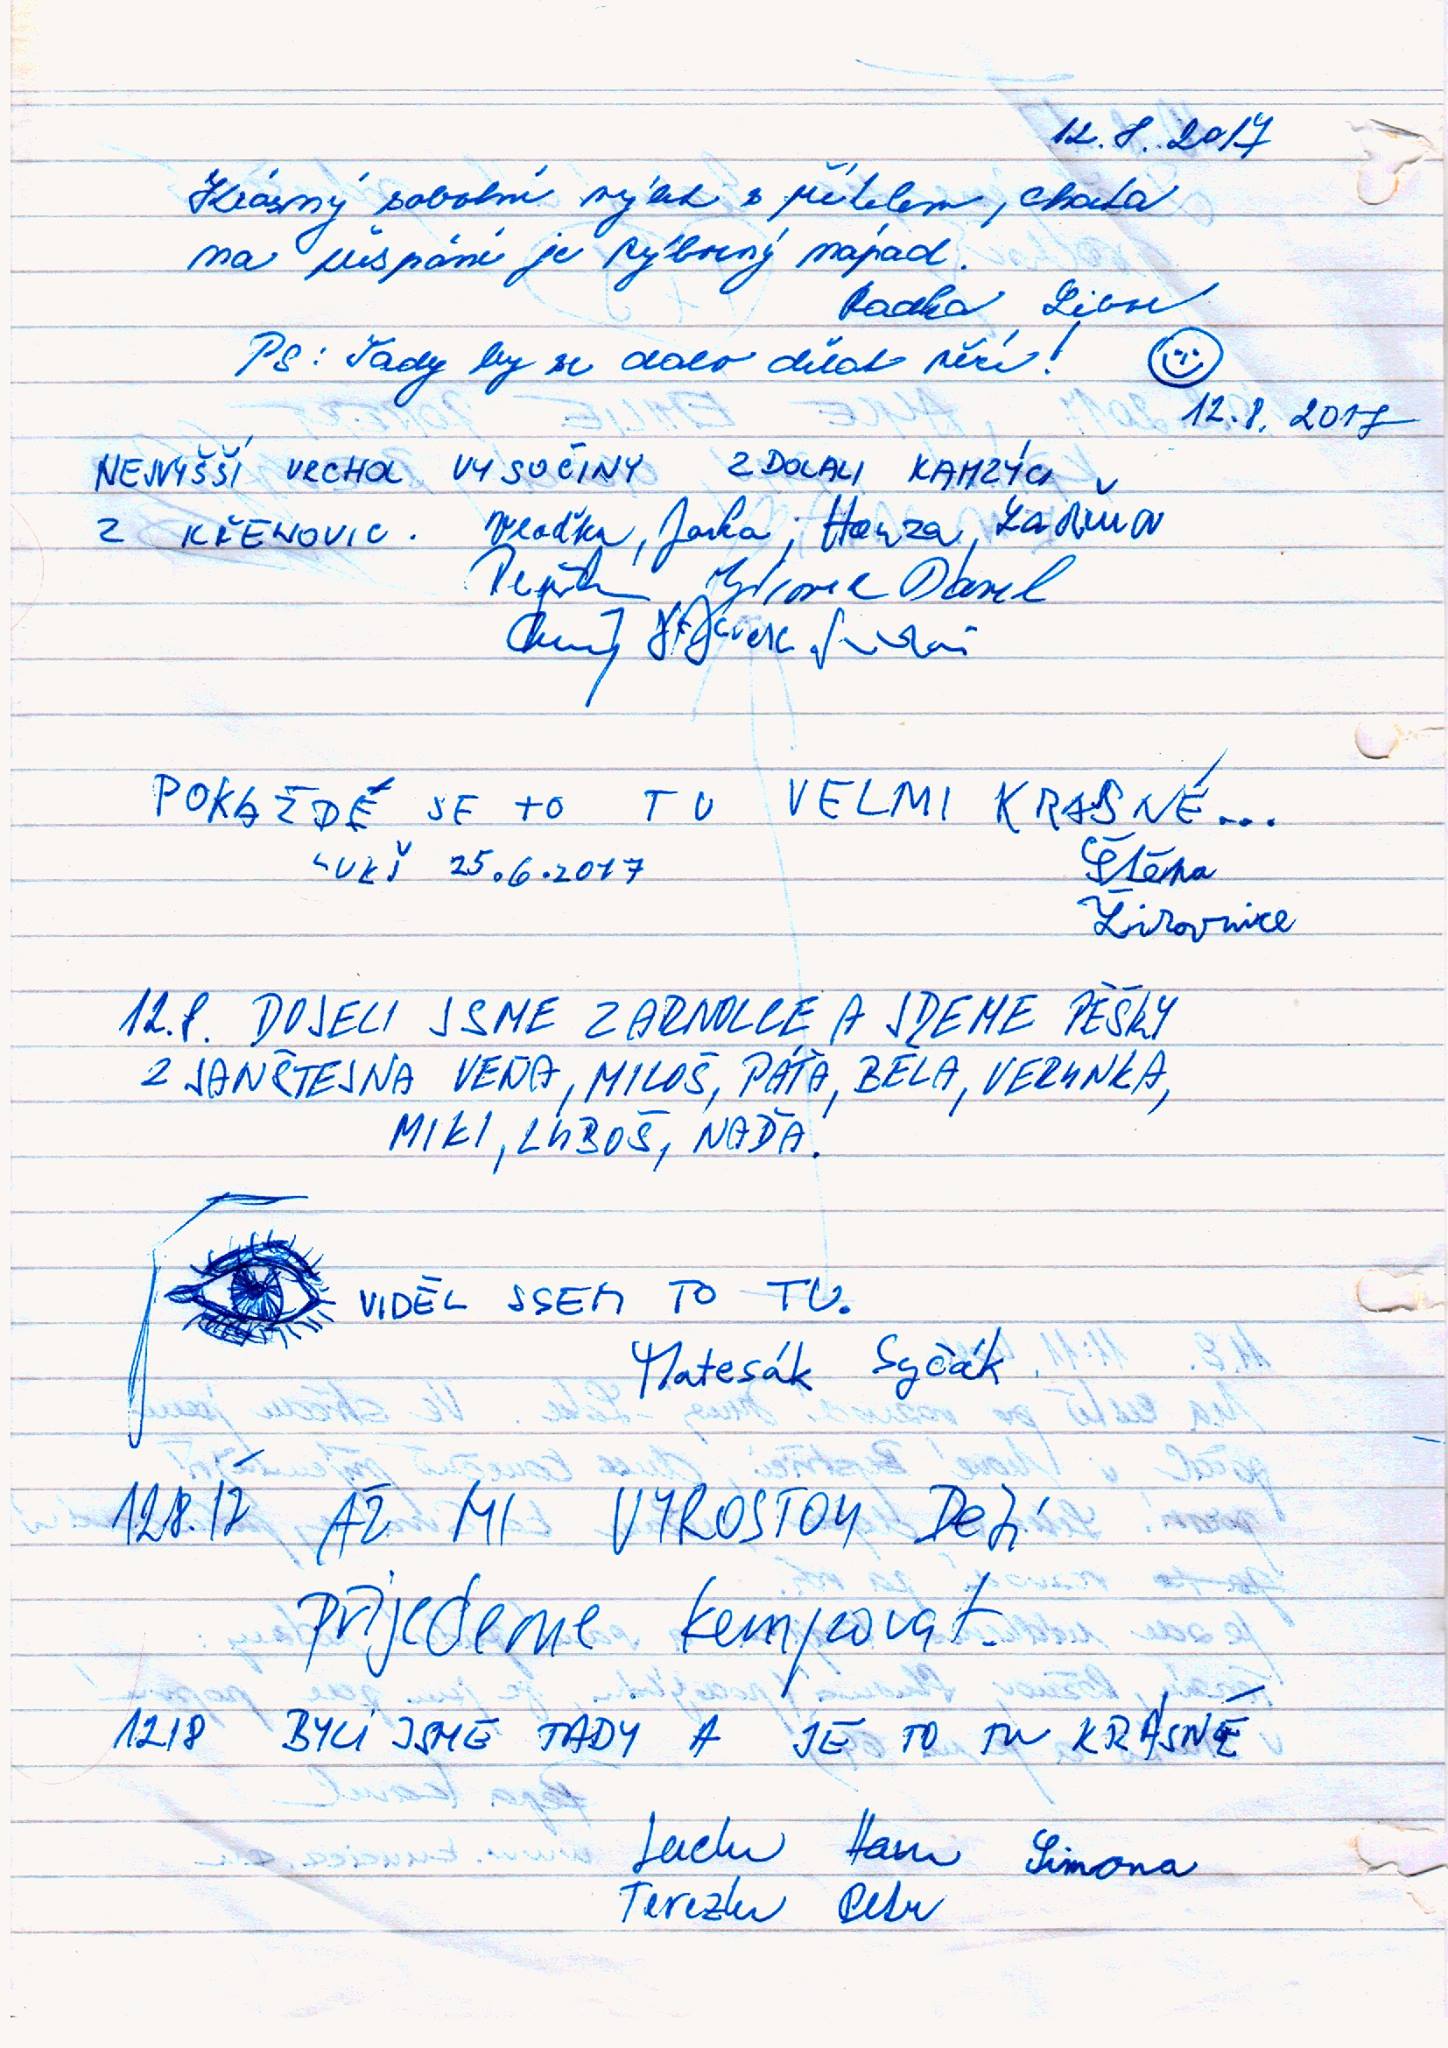 12.8.2017
Krásný sobotní výlet s přítelem, chata
na přespání je výborný nápad.
Radka Libor
PS: Tady by se dalo dělat věcí!
12.8.2017
NEJVYŠŠÍ VRCHOL VYSOČINY ZDOLALI KAMZÍCI
Z KŘENOVIC. Vlaďka, Jarka, Honza, Ladislav
Pepík Daniel
POKAŽDÉ SE TO TU VELMI KRASNÉ...
LUKŠ 25.6.2017 Štěpa
Žirovnice
12.8. DOJELI JSME Z ARNOLCE A JDEME PĚŠKY
Z JANŠTEJNA VEŇA, MILOŠ, PÁŤA, BĚLA, VERUNKA,
MIKI, LUBOŠ, NAĎA.
VIDĚL JSEM TO TU.
Matesák Syčák
12.8.17 AŽ MI VYROSTOU DeTi
přijedeme kempovat.
12/8 BYLI JSME TADY A JE TO TU KRÁSNÉ
Hana Simona
Terezka Petr